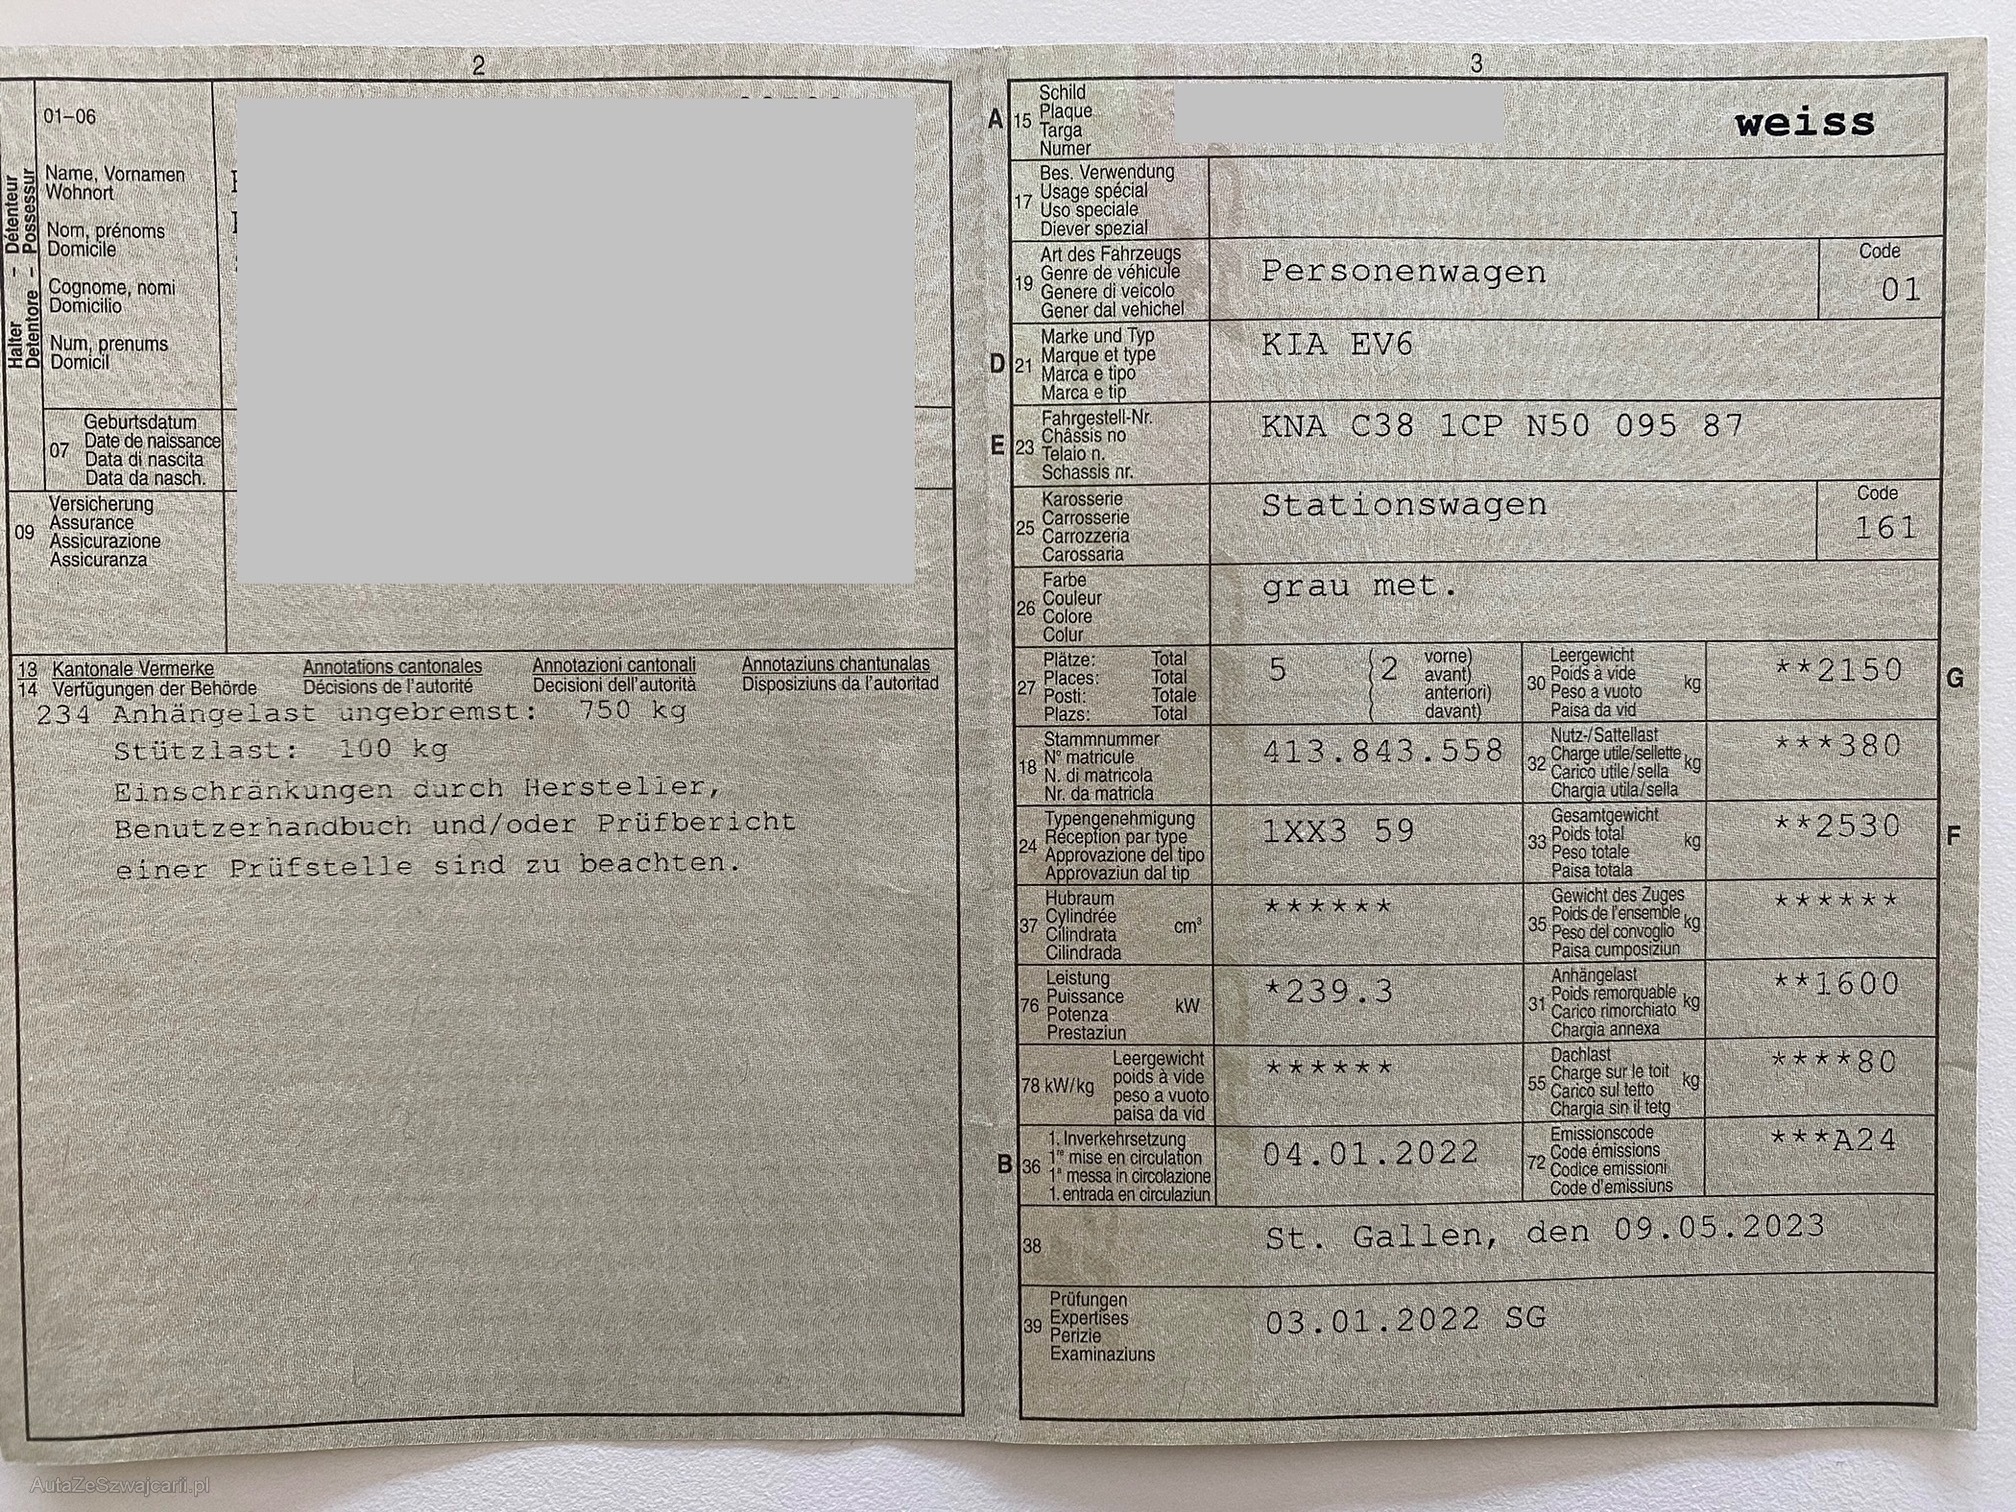 2
01–06
Name, Vornamen
Wohnort
Nom, prénoms
Domicile
Cognome, nomi
Domicilio
Num, prenums
Domicil
Halter – Détenteur
Detentore – Possessur
07
Geburtsdatum
Date de naissance
Data di nascita
Data da nasch.
09
Versicherung
Assurance
Assicurazione
Assicuranza
13 Kantonale Vermerke Annotations cantonales Annotazioni cantonali Annotaziuns chantunalas
14 Verfügungen der Behörde Décisions de l'autorité Decisioni dell'autorità Disposiziuns da l'autoritad
234 Anhängelast ungebremst: 750 kg
Stützlast: 100 kg
Einschränkungen durch Hersteller,
Benutzerhandbuch und/oder Prüfbericht
einer Prüfstelle sind zu beachten.
3
A 15
Schild
Plaque
Targa
Numer
weiss
17
Bes. Verwendung
Usage spécial
Uso speciale
Diever spezial
19
Art des Fahrzeugs
Genre de véhicule
Genere di veicolo
Gener dal vehichel
Personenwagen
Code
01
D 21
Marke und Typ
Marque et type
Marca e tipo
Marca e tip
KIA EV6
E 23
Fahrgestell-Nr.
Châssis no
Telaio n.
Schassis nr.
KNA C38 1CP N50 095 87
25
Karosserie
Carrosserie
Carrozzeria
Carossaria
Stationswagen
Code
161
26
Farbe
Couleur
Colore
Colur
grau met.
27
Plätze: Total
Places: Total
Posti: Totale
Plazs: Total
5 (2
vorne)
avant)
anteriori)
davant)
30
Leergewicht
Poids à vide
Peso a vuoto
Paisa da vid
kg
**2150
G
18
Stammnummer
N° matricule
N. di matricola
Nr. da matricla
413.843.558
32
Nutz-/Sattellast
Charge utile/sellette
Carico utile/sella
Chargia utila/sella
kg
***380
24
Typengenehmigung
Réception par type
Approvazione del tipo
Approvaziun dal tip
1XX3 59
33
Gesamtgewicht
Poids total
Peso totale
Paisa totala
kg
**2530
F
37
Hubraum
Cylindrée
Cilindrata
Cilindrada
cm³
******
35
Gewicht des Zuges
Poids de l'ensemble
Peso del convoglio
Paisa cumposiziun
kg
******
76
Leistung
Puissance
Potenza
Prestaziun
kW
*239.3
31
Anhängelast
Poids remorquable
Carico rimorchiato
Chargia annexa
kg
**1600
78 kW/kg
Leergewicht
poids à vide
peso a vuoto
paisa da vid
******
55
Dachlast
Charge sur le toit
Carico sul tetto
Chargia sin il tetg
kg
****80
B 36
1. Inverkehrsetzung
1re mise en circulation
1a messa in circolazione
1. entrada en circulaziun
04.01.2022
72
Emissionscode
Code émissions
Codice emissioni
Code d'emissiuns
***A24
38
St. Gallen, den 09.05.2023
39
Prüfungen
Expertises
Perizie
Examinaziuns
03.01.2022 SG
AutaZeSzwajcarii.pl